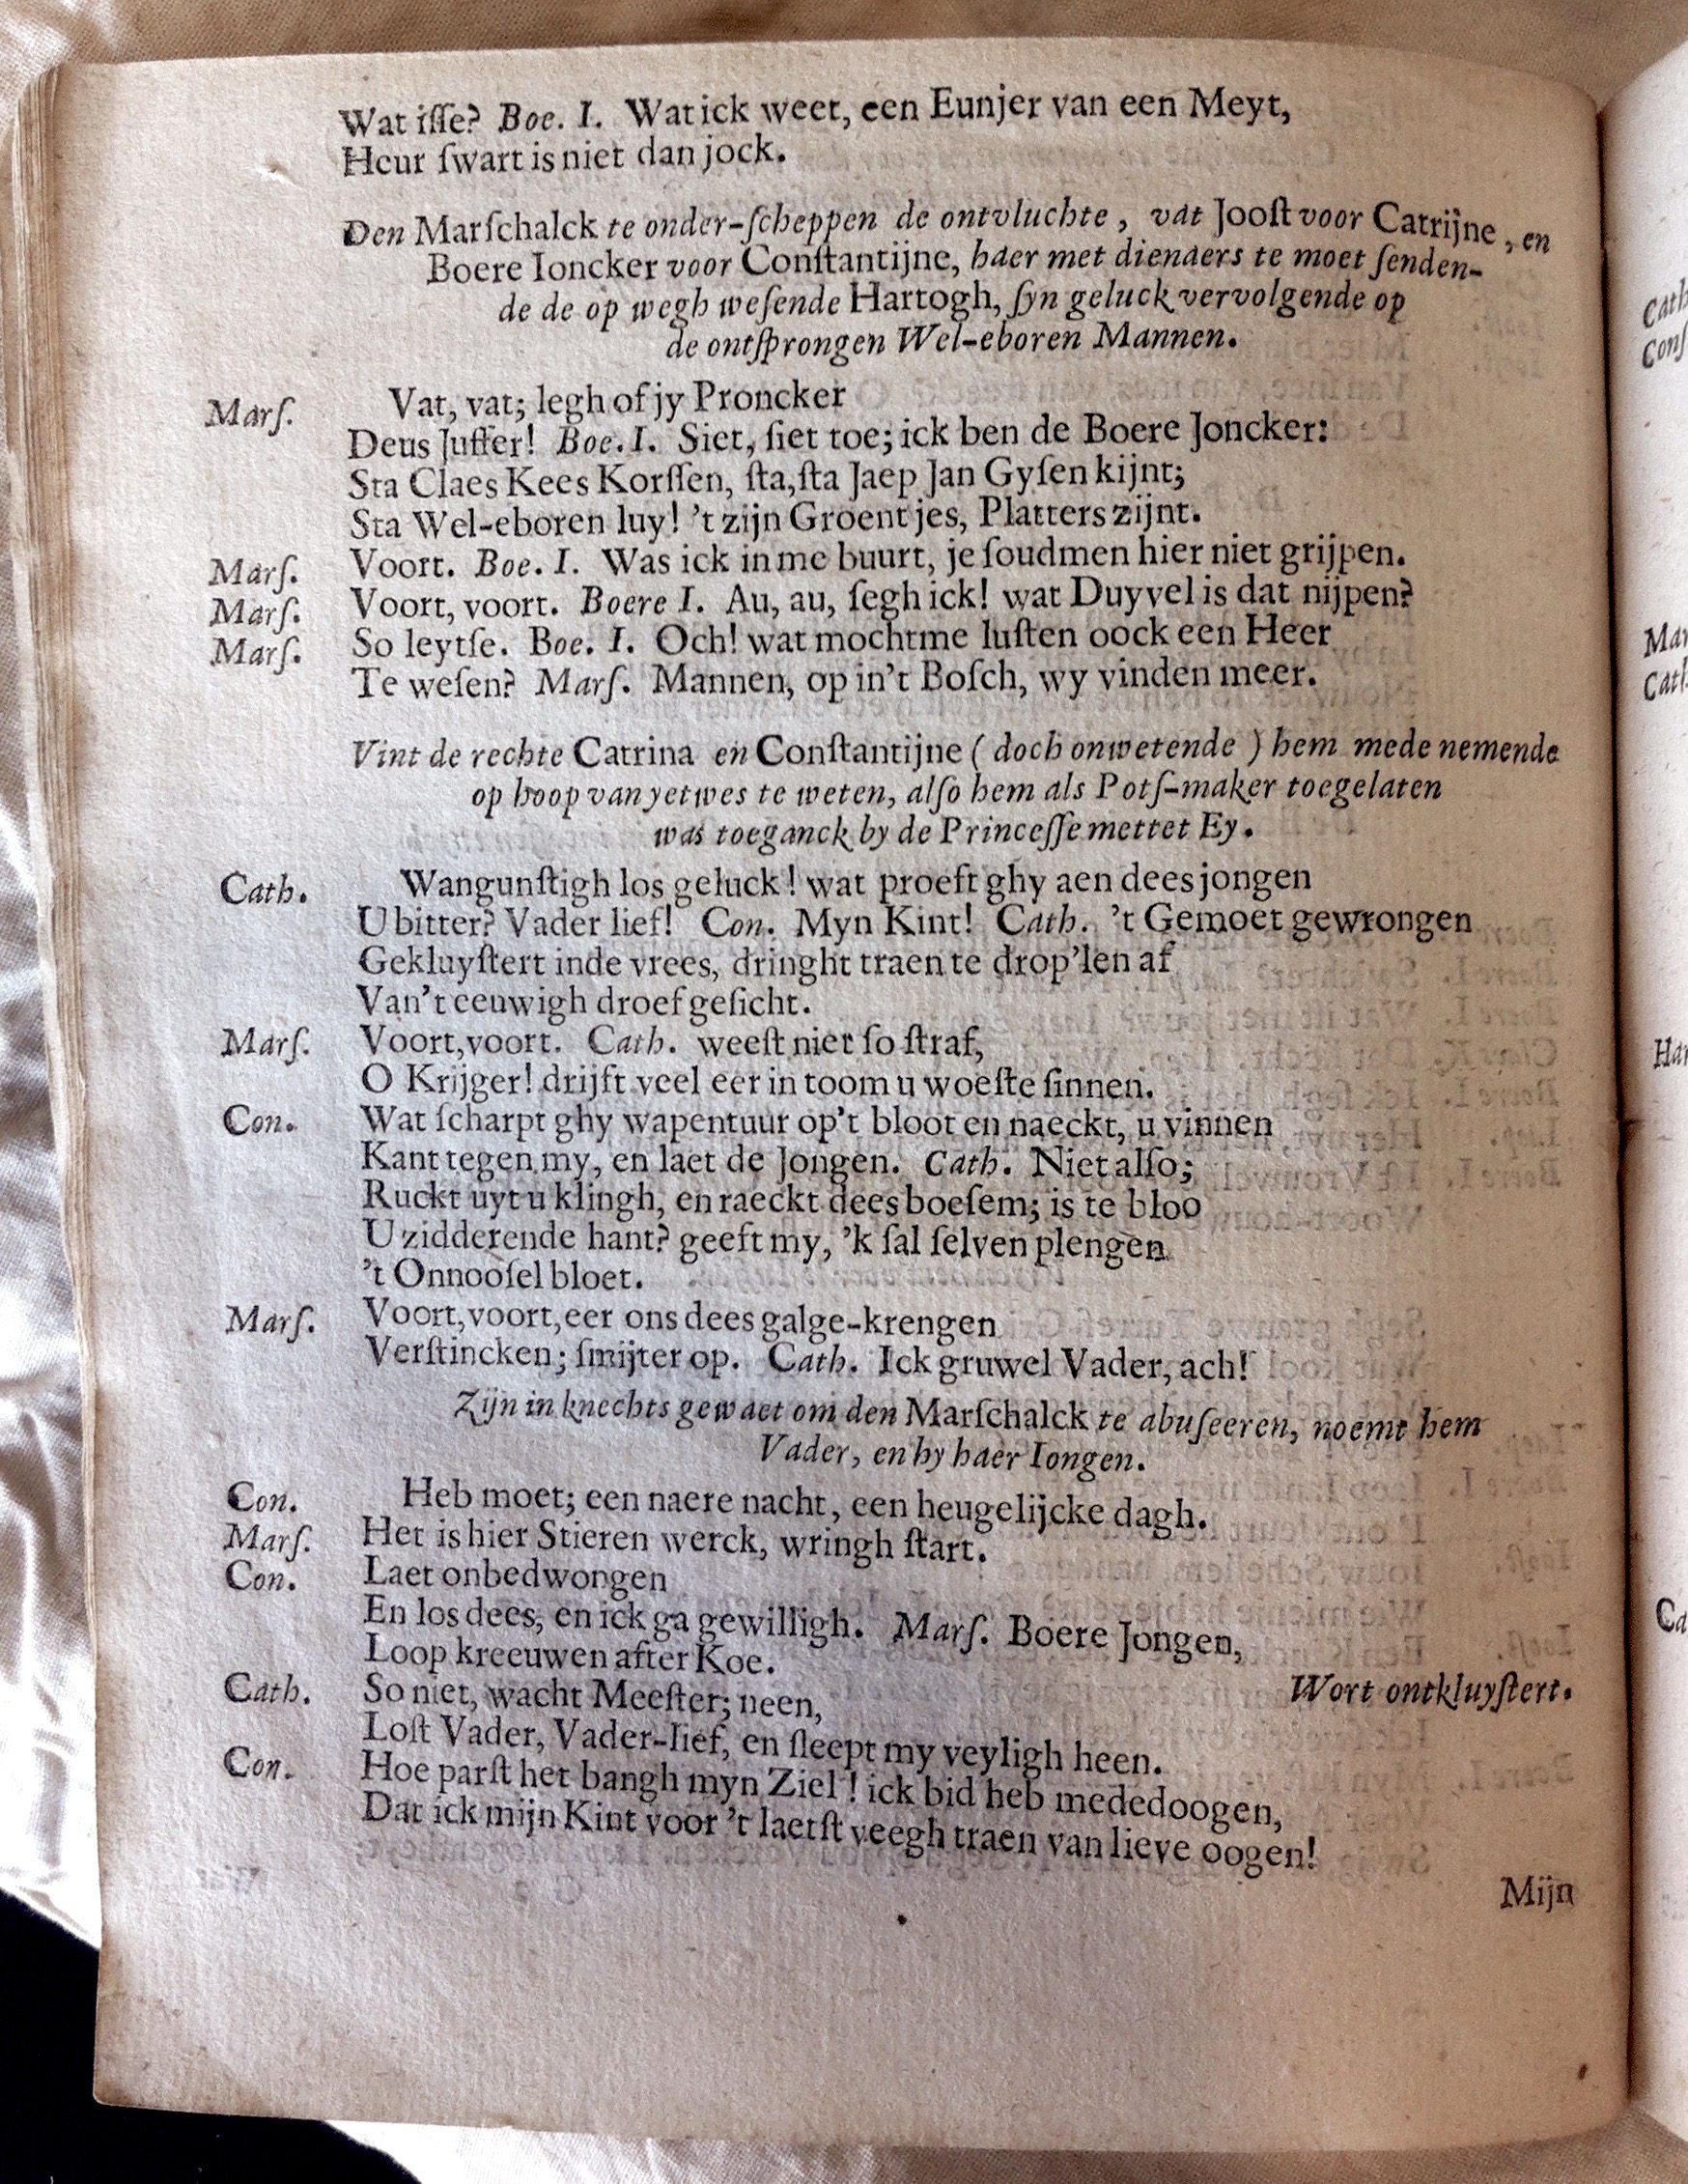 Wat iſſe? Boe. I. Wat ick weet, een Eunjer van een Meyt,
Heur ſwart is niet dan jock.
Den Marſchalck te onder-ſcheppen de ontvluchte, vat Jooſt voor Catrijne, en
Boere Ioncker voor Conſtantijne, haer met dienders te moet ſenden-
de de op wegh weſende Hartogh, ſyn geluck vervolgende op
de ontſprongen Wel-eboren Mannen.
Marſ. Vat, vat; legh of jy Proncker
Deus Juffer! Boe. I. Siet, ſiet toe; ick ben de Boere Joncker:
Sta Claes Kees Korſſen, ſta, ſta Jaep Jan Gyſen kijnt;
Sta Wel-eboren luy! 't zijn Groentjes, Platters zijnt.
Marſ. Voort. Boe. I. Was ick in me buurt, je ſoudmen hier niet grijpen.
Marſ. Voort, voort. Boere I. Au, au, ſegh ick! wat Duyvel is dat nijpen?
Marſ. So leytſe. Boe. I. Och! wat mochtme luſten oock een Heer
Te weſen? Marſ. Mannen, op in't Boſch, wy vinden meer.
Vint de rechte Catrina en Conſtantijne (doch onwetende) hem mede nemende
op hoop van yetwes te weten, alſo hem als Potſ-maker toegelaten
was toeganck by de Princeſſe mettet Ey.
Cath. Wangunſtigh los geluck! wat proeft ghy aen dees jongen
U bitter? Vader lief! Con. Myn Kint! Cath. 't Gemoet gewrongen
Gekluyſtert inde vrees, dringht traen te drop'len af
Van't eeuwigh droef geſicht.
Marſ. Voort, voort. Cath. weeſt niet ſo ſtraf,
O Krijger! drijft veel eer in toom u woeſte ſinnen.
Con. Wat ſcharpt ghy wapentuur op't bloot en naeckt, u vinnen
Kant tegen my, en laet de Jongen. Cath. Niet alſo;
Ruckt uyt u klingh, en raeckt dees boeſem; is te bloo
U zidderende hant? geeft my, 'k ſal ſelven plengen
't Onnooſel bloet.
Marſ. Voort, voort, eer ons dees galge-krengen
Verſtincken; ſmijter op. Cath. Ick gruwel Vader, ach!
Zijn in knechts gewaet om den Marſchalck te abuſeeren, noemt hem
Vader, en hy haer Iongen.
Con. Heb moet; een naere nacht, een heugelijcke dagh.
Marſ. Het is hier Stieren werck, wringh ſtart.
Con. Laet onbedwongen
En los dees, en ick ga gewilligh. Marſ. Boere Jongen,
Loop kreeuwen after Koe.
Cath. So niet, wacht Meeſter; neen, Wort ontkluyſtert.
Loſt Vader, Vader-lief, en ſleept my veyligh heen.
Con. Hoe parſt het bangh myn Ziel! ick bid heb mededoogen,
Dat ick mijn Kint voor 't laetſt veegh traen van lieve oogen!
Mijn